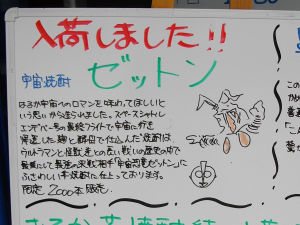 入荷しました!!
宇宙焼酎
ゼットン
はるか宇宙へのロマンを味わってほしいと
いう思いから造られました。スペースシャトル
エンデバー号の最終フライトで宇宙に行き
帰還した麹と酵母で仕込んだ焼酎は
ウルトラマンと怪獣との長い戦いの歴史の中で
最強にして最悪の宿敵「宇宙恐竜ゼットン」に
ふさわしい芋焼酎に仕上っております。
限定 2000本限定